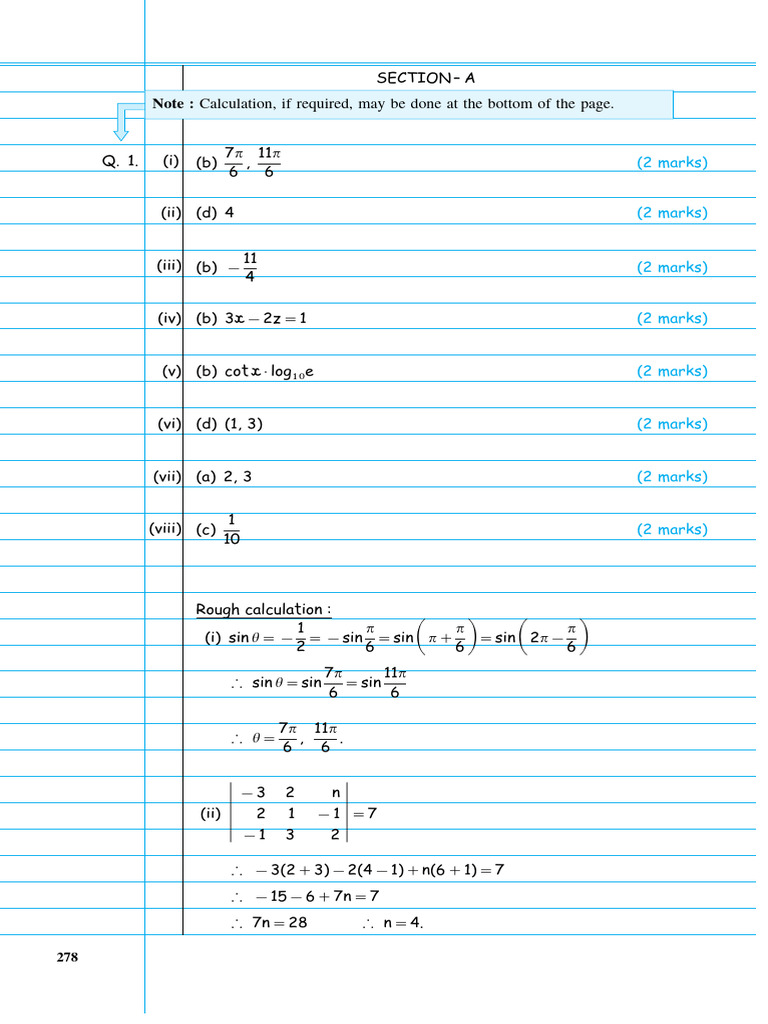 SECTION – A
Note : Calculation, if required, may be done at the bottom of the page.
Q. 1. (i) (b) 7π/6, 11π/6 (2 marks)
(ii) (d) 4 (2 marks)
(iii) (b) −11/4 (2 marks)
(iv) (b) 3x − 2z = 1 (2 marks)
(v) (b) cot x · log₁₀e (2 marks)
(vi) (d) (1, 3) (2 marks)
(vii) (a) 2, 3 (2 marks)
(viii) (c) 1/10 (2 marks)
Rough calculation :
(i) sin θ = −1/2 = −sin π/6 = sin(π + π/6) = sin(2π − π/6)
∴ sin θ = sin 7π/6 = sin 11π/6
∴ θ = 7π/6, 11π/6.
−3 2 n
(ii) 2 1 −1 = 7
−1 3 2
∴ −3(2 + 3) − 2(4 − 1) + n(6 + 1) = 7
∴ −15 − 6 + 7n = 7
∴ 7n = 28 ∴ n = 4.
278